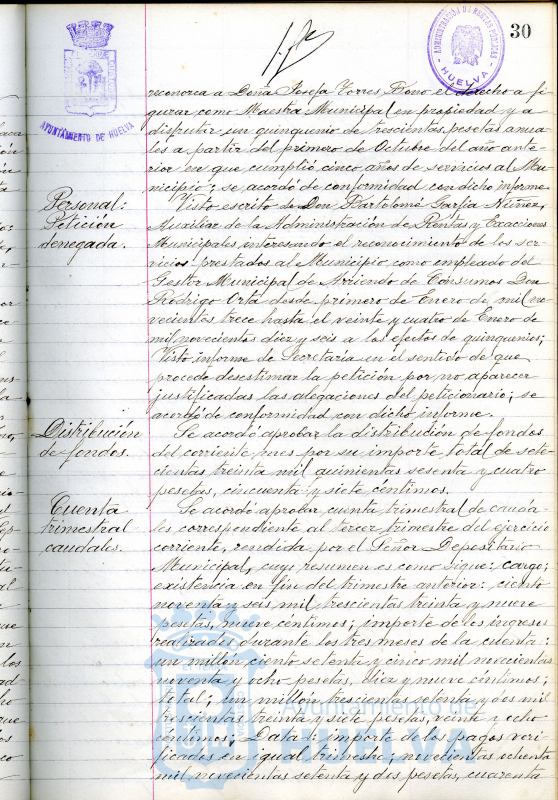 30
AYUNTAMIENTO DE HUELVA
ADMINISTRACION DE RENTAS PUBLICAS
HUELVA
reconozca a Doña Josefa Torres Bono el derecho a fi
gurar como Maestra Municipal en propiedad y a
disfrutar un quinquenio de trescientas pesetas anua
les a partir del primero de Octubre del año ante-
rior en que cumplió cinco años de servicios al Mu-
nicipio; se acordó de conformidad con dicho informe.
Personal:
Petición
denegada.
Visto escrito de Don Bartolomé Farfia Núñez,
Auxiliar de la Administración de Rentas y Exacciones
Municipales interesando el reconocimiento de los ser-
vicios prestados al Municipio como empleado del
Gestor Municipal de Arriendo de Consumos Don
Rodrigo Orta desde primero de Enero de mil no-
vecientos trece hasta el veinte y cuatro de Enero de
mil novecientos diez y seis a los efectos de quinquenios;
Visto informe de Secretaría en el sentido de que
procede desestimar la petición por no aparecer
justificadas las alegaciones del peticionario; se
acordó de conformidad con dicho informe.
Distribución
de fondos.
Se acordó aprobar la distribución de fondos
del corriente mes por su importe total de sete-
cientas treinta mil quinientas sesenta y cuatro
pesetas, cincuenta y siete céntimos.
Cuenta
trimestral
caudales.
Se acordó aprobar cuenta trimestral de cauda-
les correspondiente al tercer trimestre del ejercicio
corriente, rendida por el Señor Depositario
Municipal, cuyo resumen es como sigue: cargo;
existencia en fin del trimestre anterior: ciento
noventa y seis mil trescientas treinta y nueve
pesetas, nueve céntimos; importe de los ingresos
realizados durante los tres meses de la cuenta:
un millón ciento setenta y cinco mil novecientas
noventa y ocho pesetas, diez y nueve céntimos;
total; un millón trescientas setenta y dos mil
trescientas treinta y siete pesetas, veinte y ocho
céntimos; Data: importe de los pagos veri-
ficados en igual trimestre; novecientas ochenta
mil novecientas setenta y dos pesetas, cuarenta
Ayuntamiento de
HUELVA